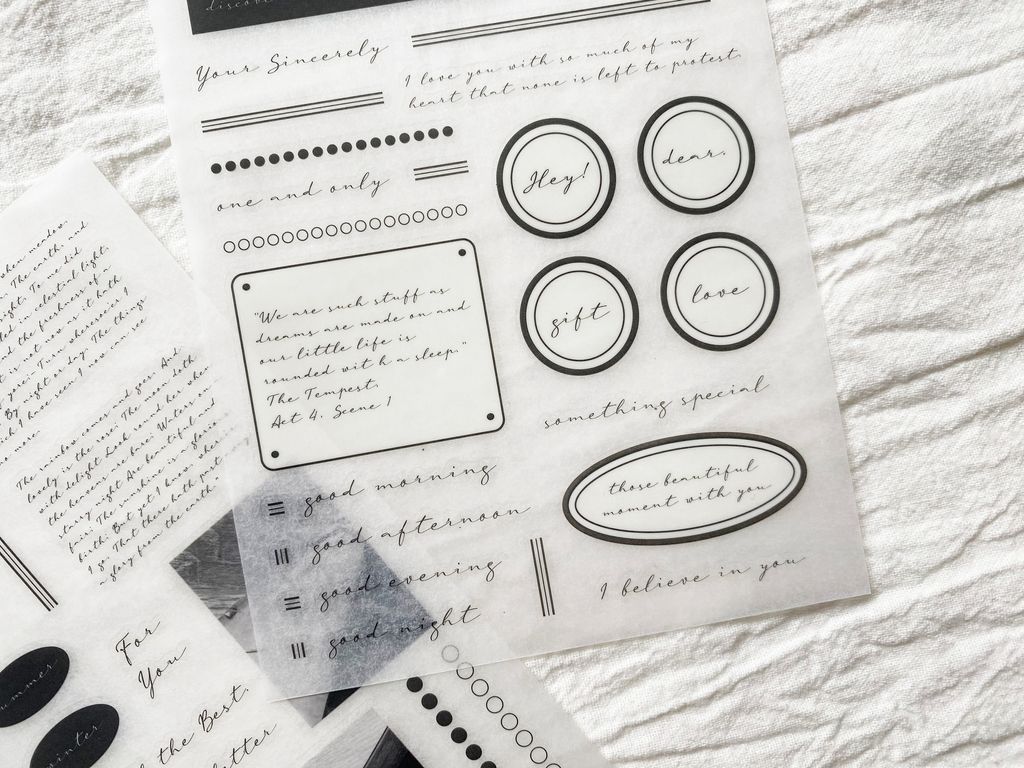 Your Sincerely
I love you with so much of my
heart that none is left to protest.
one and only
Hey!
dear,
gift
love
"We are such stuff as
dreams are made on and
our little life is
rounded wit h a sleep."
The Tempest,
Act 4, Scene 1
something special
those beautiful
moment with you
good morning
good afternoon
good evening
good night
I believe in you
when meadow,
The earth, and
light, To me did
celestial light,
and the freshness of a
is not now as it hath
yore, Turn wheresoe'er I
By night or day, The things
which I have seen I now can see
no more.
The rainbow comes and goes, And
lovely is the rose, The moon doth
with delight Look round her when
the heavens are bare, Waters on a
starry night Are beautiful and
fair; The sunshine is a glorious
birth; But yet I know, where'er
I go, That there hath past
a glory from the earth.
For
You
the Best,
winter